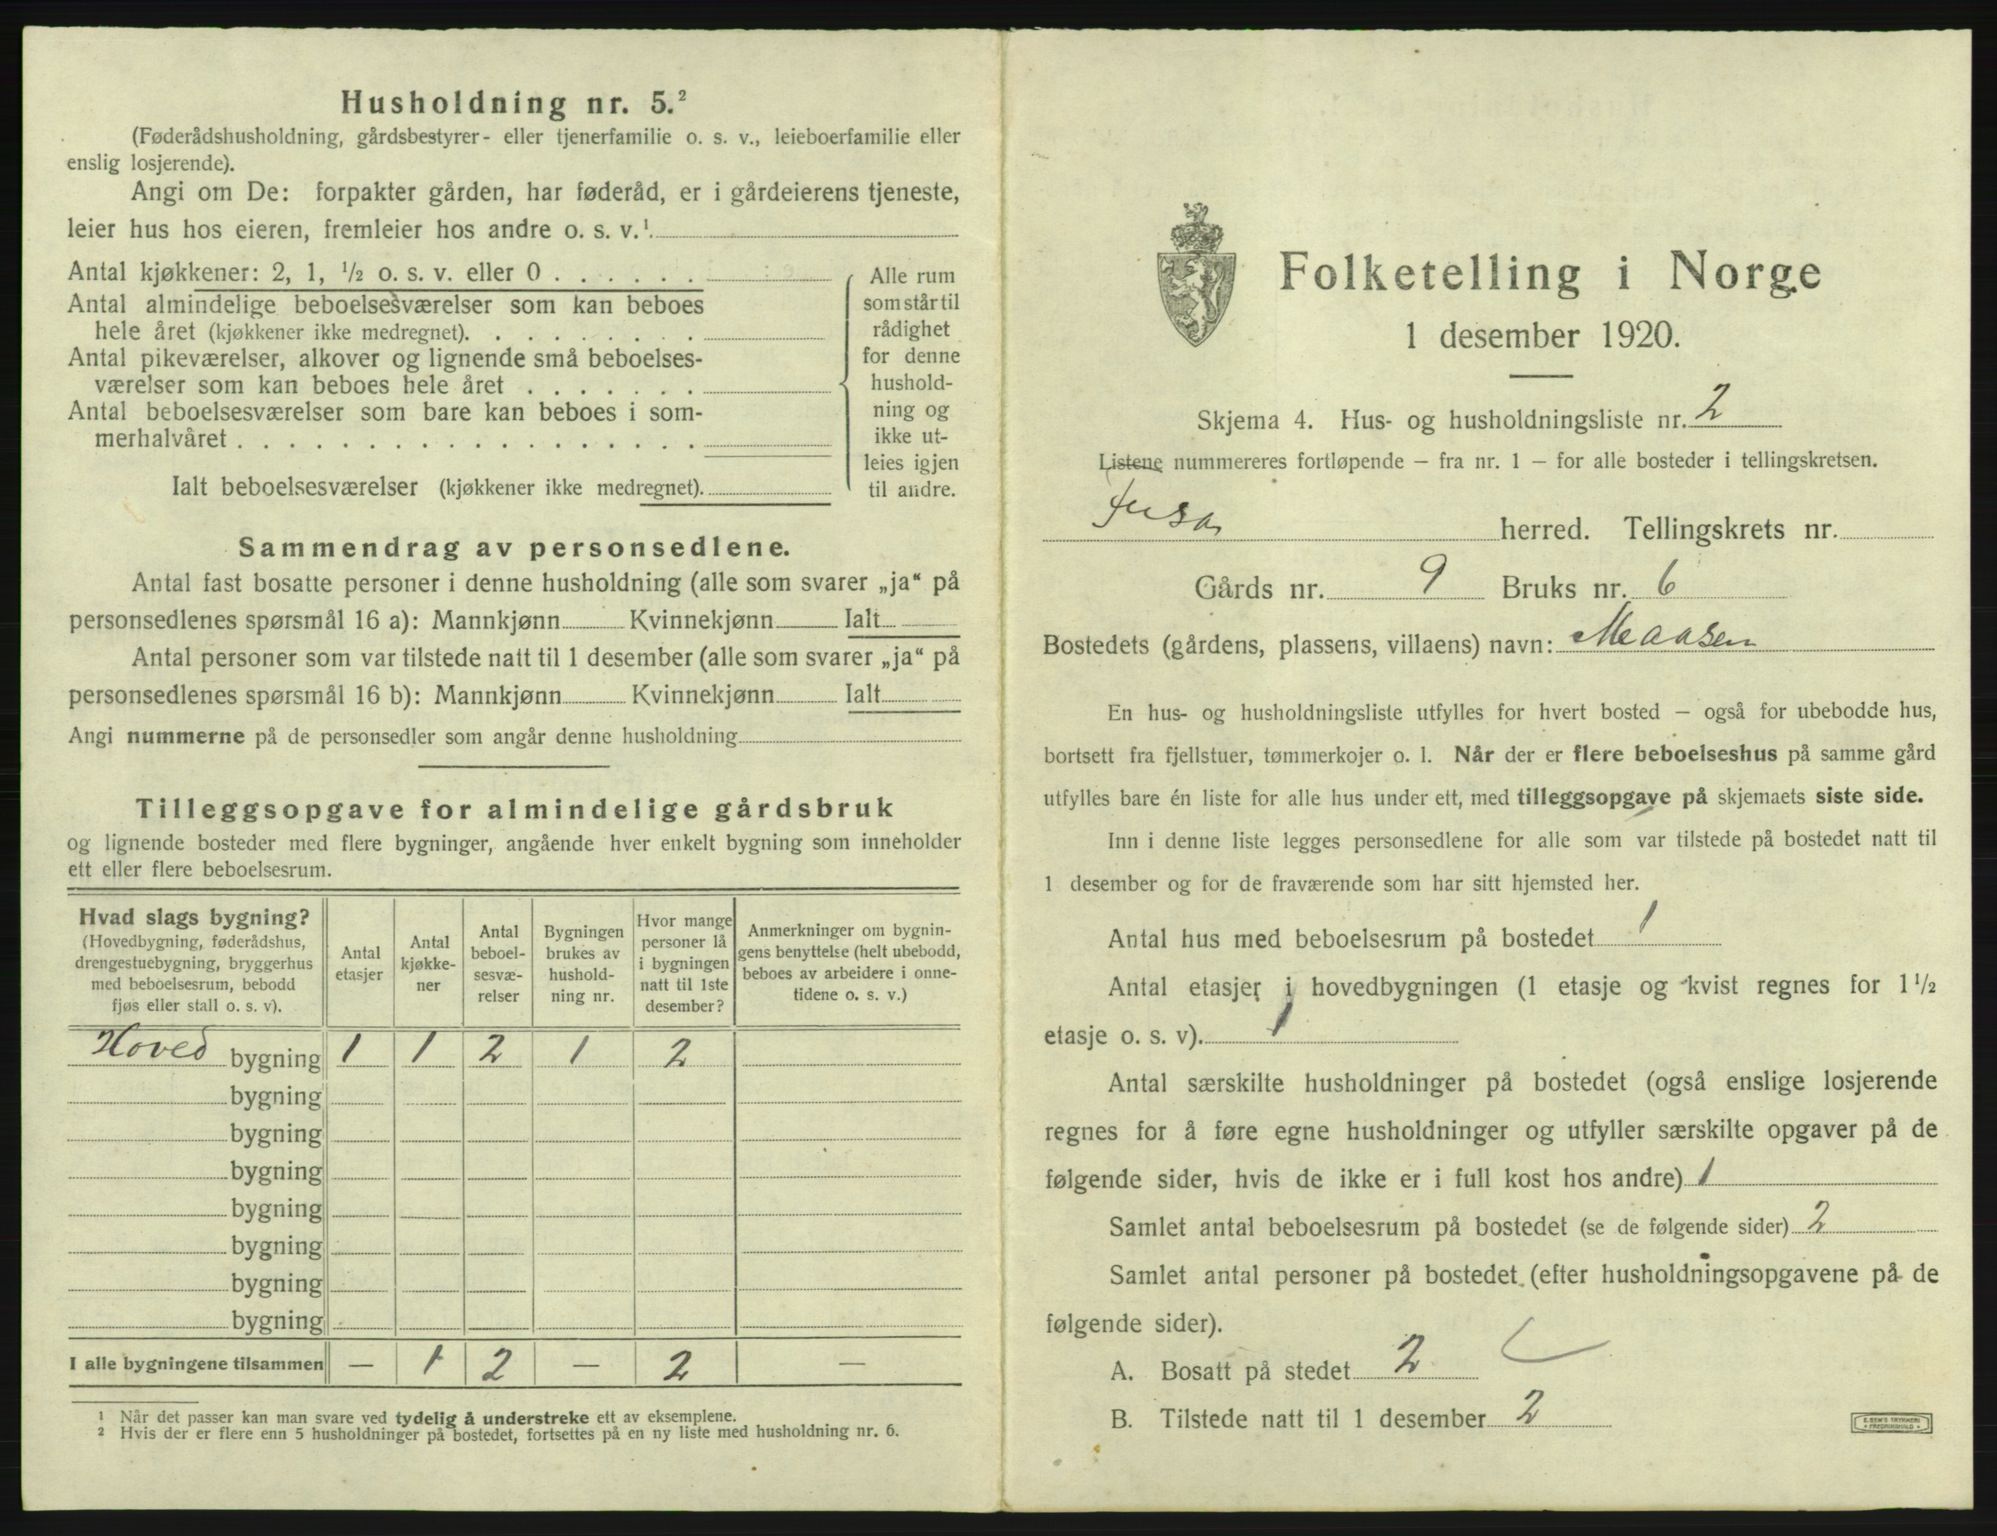 Husholdning nr. 5.²
(Føderådshusholdning, gårdsbestyrer- eller tjenerfamilie o. s. v., leieboerfamilie eller
enslig losjerende).
Angi om De: forpakter gården, har føderåd, er i gårdeierens tjeneste,
leier hus hos eieren, fremleier hos andre o. s. v.¹
Antal kjøkkener: 2, 1, ½ o. s. v. eller 0 . . . . . .
Antal almindelige beboelsesværelser som kan beboes
hele året (kjøkkener ikke medregnet). . . . . . . . .
Antal pikeværelser, alkover og lignende små beboelses-
værelser som kan beboes hele året . . . . . . .
Antal beboelsesværelser som bare kan beboes i som-
merhalvåret . . . . . . . . . . . . . . . . . .
Ialt beboelsesværelser (kjøkkener ikke medregnet).
Alle rum
som står til
rådighet
for denne
hushold-
ning og
ikke ut-
leies igjen
til andre.
Sammendrag av personsedlene.
Antal fast bosatte personer i denne husholdning (alle som svarer „ja“ på
personsedlenes spørsmål 16 a): Mannkjønn Kvinnekjønn Ialt
Antal personer som var tilstede natt til 1 desember (alle som svarer „ja“ på
personsedlenes spørsmål 16 b): Mannkjønn Kvinnekjønn Ialt
Angi nummerne på de personsedler som angår denne husholdning
Tilleggsopgave for almindelige gårdsbruk
og lignende bosteder med flere bygninger, angående hver enkelt bygning som inneholder
ett eller flere beboelsesrum.
Hvad slags bygning?
(Hovedbygning, føderådshus,
drengestuebygning, bryggerhus
med beboelsesrum, bebodd
fjøs eller stall o. s. v).
Antal
etasjer
Antal
kjøkke-
ner
Antal
beboel-
sesvæ-
relser
Bygningen
brukes av
hushold-
ning nr.
Hvor mange
personer lå
i bygningen
natt til 1ste
desember?
Anmerkninger om bygnin-
gens benyttelse (helt ubebodd,
beboes av arbeidere i onne-
tidene o. s. v.)
Hoved bygning 1 1 2 1 2
bygning
bygning
bygning
bygning
bygning
bygning
bygning
I alle bygningene tilsammen — 1 2 — 2 —
¹ Når det passer kan man svare ved tydelig å understreke ett av eksemplene.
² Hvis der er flere enn 5 husholdninger på bostedet, fortsettes på en ny liste med husholdning nr. 6.
Folketelling i Norge
1 desember 1920.
Skjema 4. Hus- og husholdningsliste nr. 2
Listene nummereres fortløpende – fra nr. 1 – for alle bosteder i tellingskretsen.
Fusa herred. Tellingskrets nr.
Gårds nr. 9 Bruks nr. 6
Bostedets (gårdens, plassens, villaens) navn: Maasen
En hus- og husholdningsliste utfylles for hvert bosted – også for ubebodde hus,
bortsett fra fjellstuer, tømmerkojer o. l. Når der er flere beboelseshus på samme gård
utfylles bare én liste for alle hus under ett, med tilleggsopgave på skjemaets siste side.
Inn i denne liste legges personsedlene for alle som var tilstede på bostedet natt til
1 desember og for de fraværende som har sitt hjemsted her.
Antal hus med beboelsesrum på bostedet 1
Antal etasjer i hovedbygningen (1 etasje og kvist regnes for 1 ½
etasje o. s. v). 1
Antal særskilte husholdninger på bostedet (også enslige losjerende
regnes for å føre egne husholdninger og utfyller særskilte opgaver på de
følgende sider, hvis de ikke er i full kost hos andre) 1
Samlet antal beboelsesrum på bostedet (se de følgende sider) 2
Samlet antal personer på bostedet (efter husholdningsopgavene på de
følgende sider).
A. Bosatt på stedet 2
B. Tilstede natt til 1 desember 2